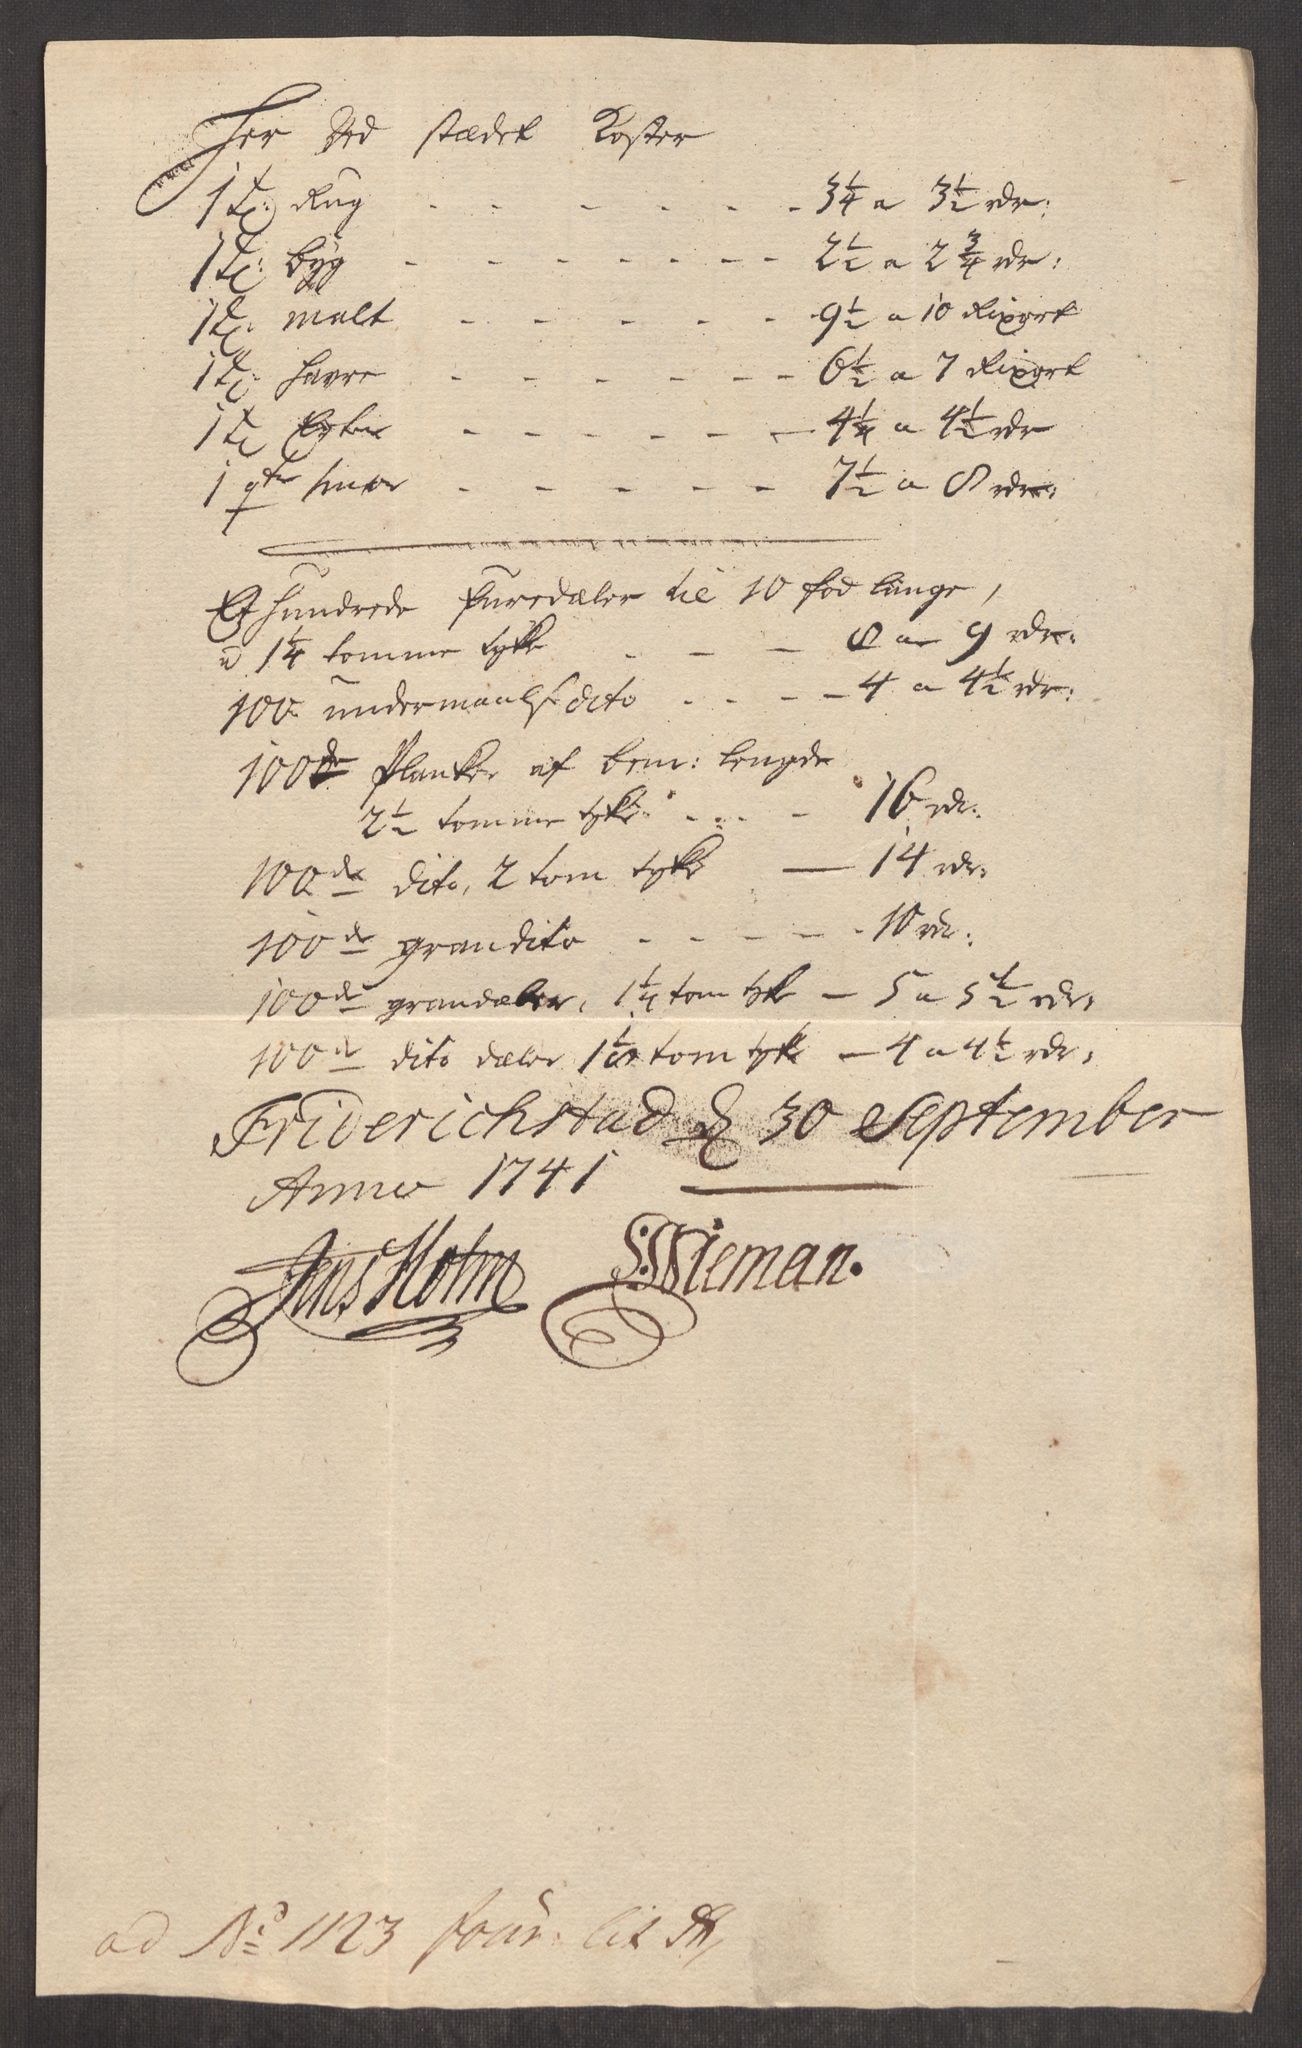 Her Ved stædet Koster
1 Tø: Rug - - - - - - - 3¼ a 3½ rdr:
1 Tø: byg - - - - - - - 2½ a 2¾ rdr:
1 Tø: malt - - - - - 9½ a 10 Rixort
1 Tø: havre - - - - - - 6½ a 7 Rixort
1 Tø Erter - - - - - 4¼ a 4½ rdr
1 qter smør - - - - - 7½ a 8 rdr:
Et hundrede furedæler til 10 fod länge,
a 1¼ tomme tyke - - - 8 a 9 rdr:
100 undermaals dito - - - - 4 a 4½ rdr:
100de Planker af bem: lengde
2½ tomme tyke - - - 16 rdr:
100de dito, 2 tom tyke - 14 rdr:
100de grandito - - - - - 10 rdr:
100de grandæler, 1¼ tom tyke - 5 a 5½ rdr:
100de dito dæler tom tyke - 4 a 4½ rdr:
Friderichstad d 30 September
Anno 1741
Jens Holm S: Wieman.
ad No 1123 four: lit